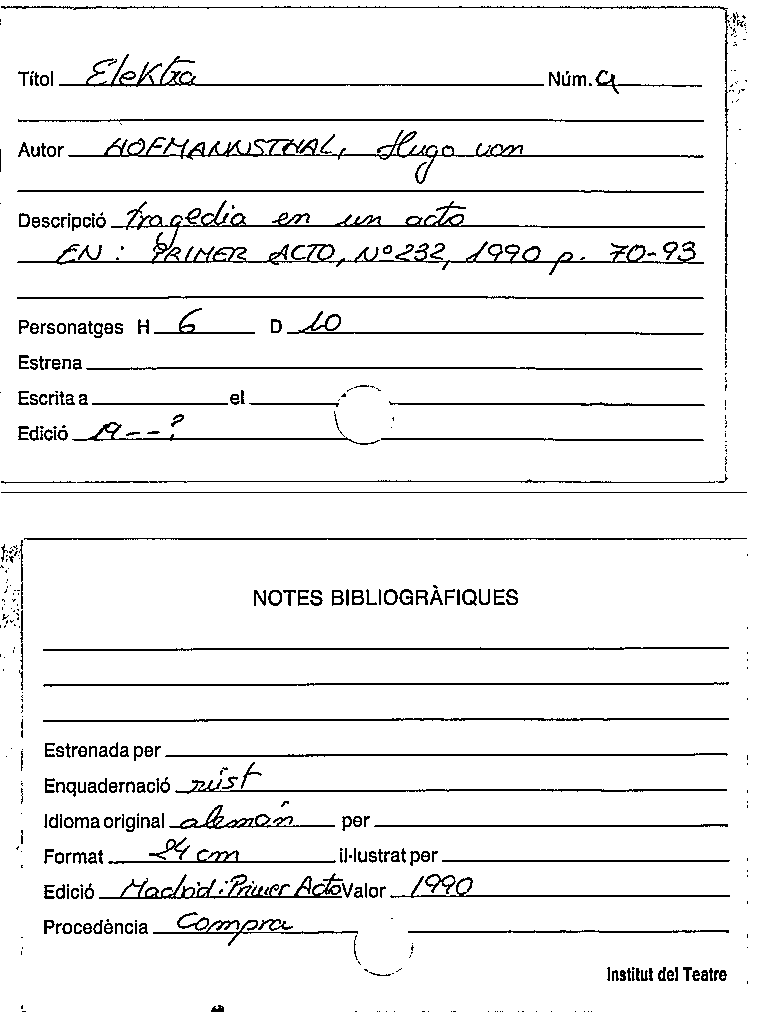 Títol Elektra Núm. 9
Autor HOFMANNSTHAL, Hugo von
Descripció tragedia en un acto
EN: PRIMER ACTO, Nº 232, 1990 p. 70-93
Personatges H 6 D 10
Estrena
Escrita a el
Edició 19--?
NOTES BIBLIOGRÀFIQUES
Estrenada per
Enquadernació rúst
Idioma original alemán per
Format 24 cm il·lustrat per
Edició Madrid: Primer Acto Valor 1990
Procedència Compra
Institut del Teatre